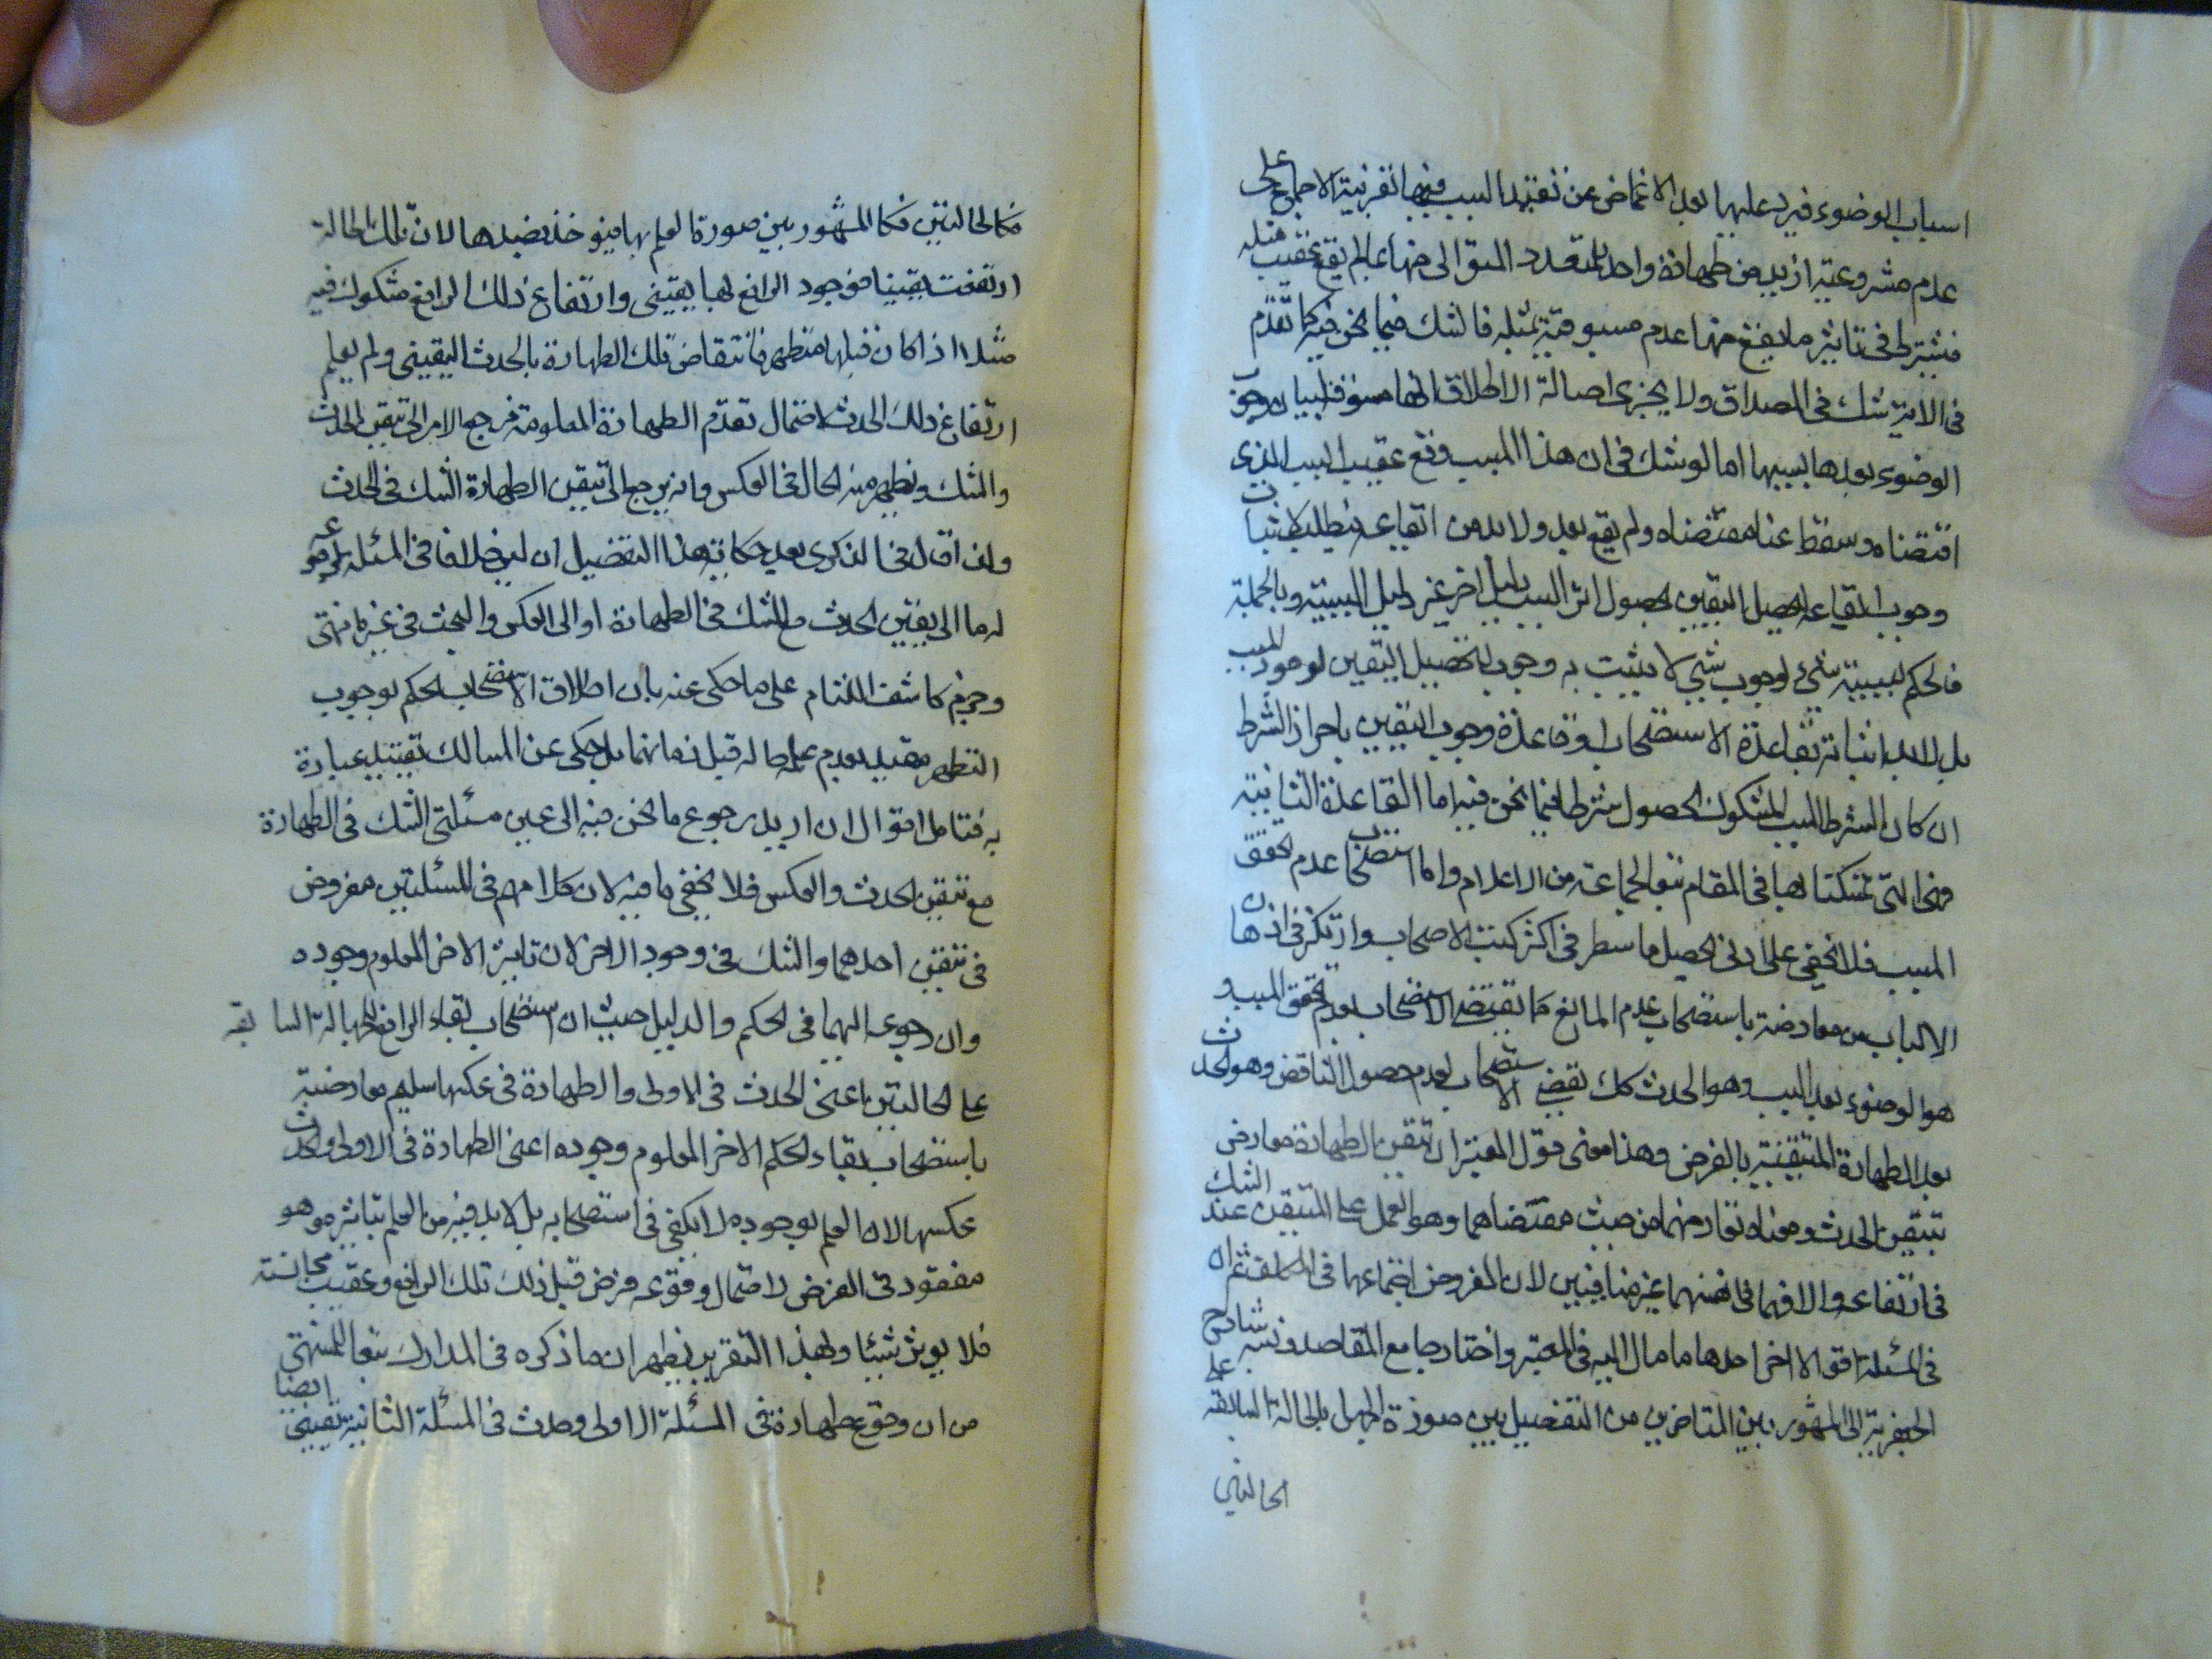 اسباب الوضوء فيرد عليها بعد الاغماض عن تقييد السبب فيها بقرينة الاجماع على
عدم مشروعية ازيد من طهارة واحدة للمتعدد المتوالى منها بما لم يقع عقيب مثله
فيشترط فى تاثير ما يقع منها عدم مسبوقيته بمثله فالشك فيما نحن فيه كما تقدم
فى الاية شك فى المصداق ولا يجزى اصالة الاطلاق انها مسوقة لبيان وجوب
الوضوء بعدها بسببها اما لو شك فى ان هذا المسبب وقع عقيب السبب الذى
اقتضاه وسقط عنا مقتضاه ولم يقع بعد ولا بد من ايقاعه فيطلب لاثبات
وجوب ايقاعه لتحصيل اليقين بحصول اثر السبب دليل اخر غير دليل السببية وبالجملة
فالحكم بسببية شئ لوجوب شئ لا يثبت به وجوب تحصيل اليقين لوجود المسبب
بل لا بد اثباته بقاعدة الاستصحاب او قاعدة وجوب اليقين باحراز الشرط
ان كان الشرط المسبب المشكوك الحصول شرطا فيما نحن فيه اما القاعدة الثانية
فهى التى تمسكنا بها فى المقام تبعا لجماعة من الاعلام واما استصحاب عدم تحقق
المسبب فلا يخفى على ادنى لتحصيل ما سطر فى اكثر كتب الاصحاب وارتكز فى اذهان
الالباب من معارضته باستصحاب عدم المانع كما يقتضى الاستصحاب بعدم تحقق المسبب و
هو الوضوء بعد السبب وهو الحدث كك يقضى الاستصحاب بعدم حصول الناقض وهو الحدث
بعد الطهارة المتيقنة بالفرض وهذا معنى قول المعتبر ان تيقن الطهارة معارض
بتيقن الحدث ومعناه تعارضهما من حيث مقتضاهما وهو العمل على المتيقن عند الشك
فى ارتفاعه والا فهما فى نفسهما غير متنافيين لان المفروض اجتماعهما فى المكلف ثم ان
فى المسئلة اقوالا اخر احدها ما مال اليه فى المعتبر واختاره جامع المقاصد ونسبه شارح
الجعفرية الى المشهور بين المتاخرين من التفصيل بين صورة الجهل بالحالة السابقة على
الحالتين
فكالحالتين فكا المشهور بين صورة العلم بها فيؤخذ بضدها لان تلك الحالة
ارتفعت يقينا فوجود الرافع لها يقينى وارتفاع ذلك الرافع مشكوك فيه
مثلا اذا كان قبلها متطهرا فانتقاض تلك الطهارة بالحدث اليقينى ولم يعلم
ارتفاع ذلك الحدث لاحتمال تقدم الطهارة المعلومة فرجع الامر الى تيقن الحدث
والشك ويظهر منه الحال فى العكس وانه يرجع الى تيقن الطهارة الشك فى الحدث
ولذا قال فى الذكرى بعد حكاية هذا التفصيل ان ليس خلافا فى المسئلة لرجوعه
لهما الى يقين الحدث مع الشك فى الطهارة او الى العكس والبحث فى غيره انتهى
وجزم كاشف اللثام على ما حكى عنه بان اطلاق الاصحاب الحكم بوجوب
التطهر مقيد بعدم علم حاله قبل زمانهما بل حكى عن المسالك تقييد عبارة
به فتامل اقوال ان اريد رجوع ما نحن فيه الى عين مسئلتى الشك فى الطهارة
مع تيقن الحدث والعكس فلا يخفى ما فيه لان كلامهم فى المسئلتين مفروض
فى تيقن احدهما والشك فى وجود الاخر لان تاثير الاخر المعلوم وجوده
وان رجوعه اليهما فى الحكم والدليل حيث ان استصحاب بقاء الرافع للحالة السابقة
على الحالتين اعنى الحدث فى الاولى والطهارة فى عكسها سليم معارضته
باستصحاب بقاء الحكم الاخر المعلوم وجوده اعنى الطهارة فى الاولى والحدث
عكسها لان العلم بوجوده لا يكفى فى استصحابه بل لا بد فيه من العلم بتاثيره وهو
مفقود فى الفرض لاحتمال وقوعه فرض قبل ذلك تلك الرافع وعقيب مجانسته
فلا يؤثر شيئا وبهذا التقرير يظهر ان ما ذكره فى المدارك تبعا للمنتهى
من ان وقوع طهارة فى المسئلة الاولى وحدث فى المسئلة الثانية يقينى ايضا